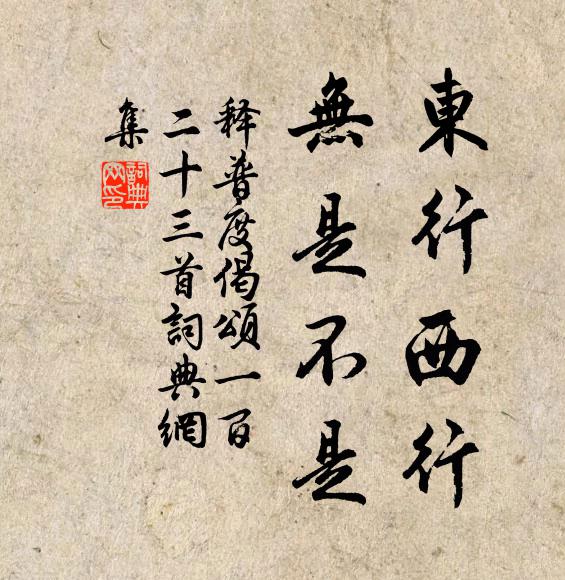 東行西行
無是不是
释普度偈頌一百
二十三首詞典網
集
詞典
网印